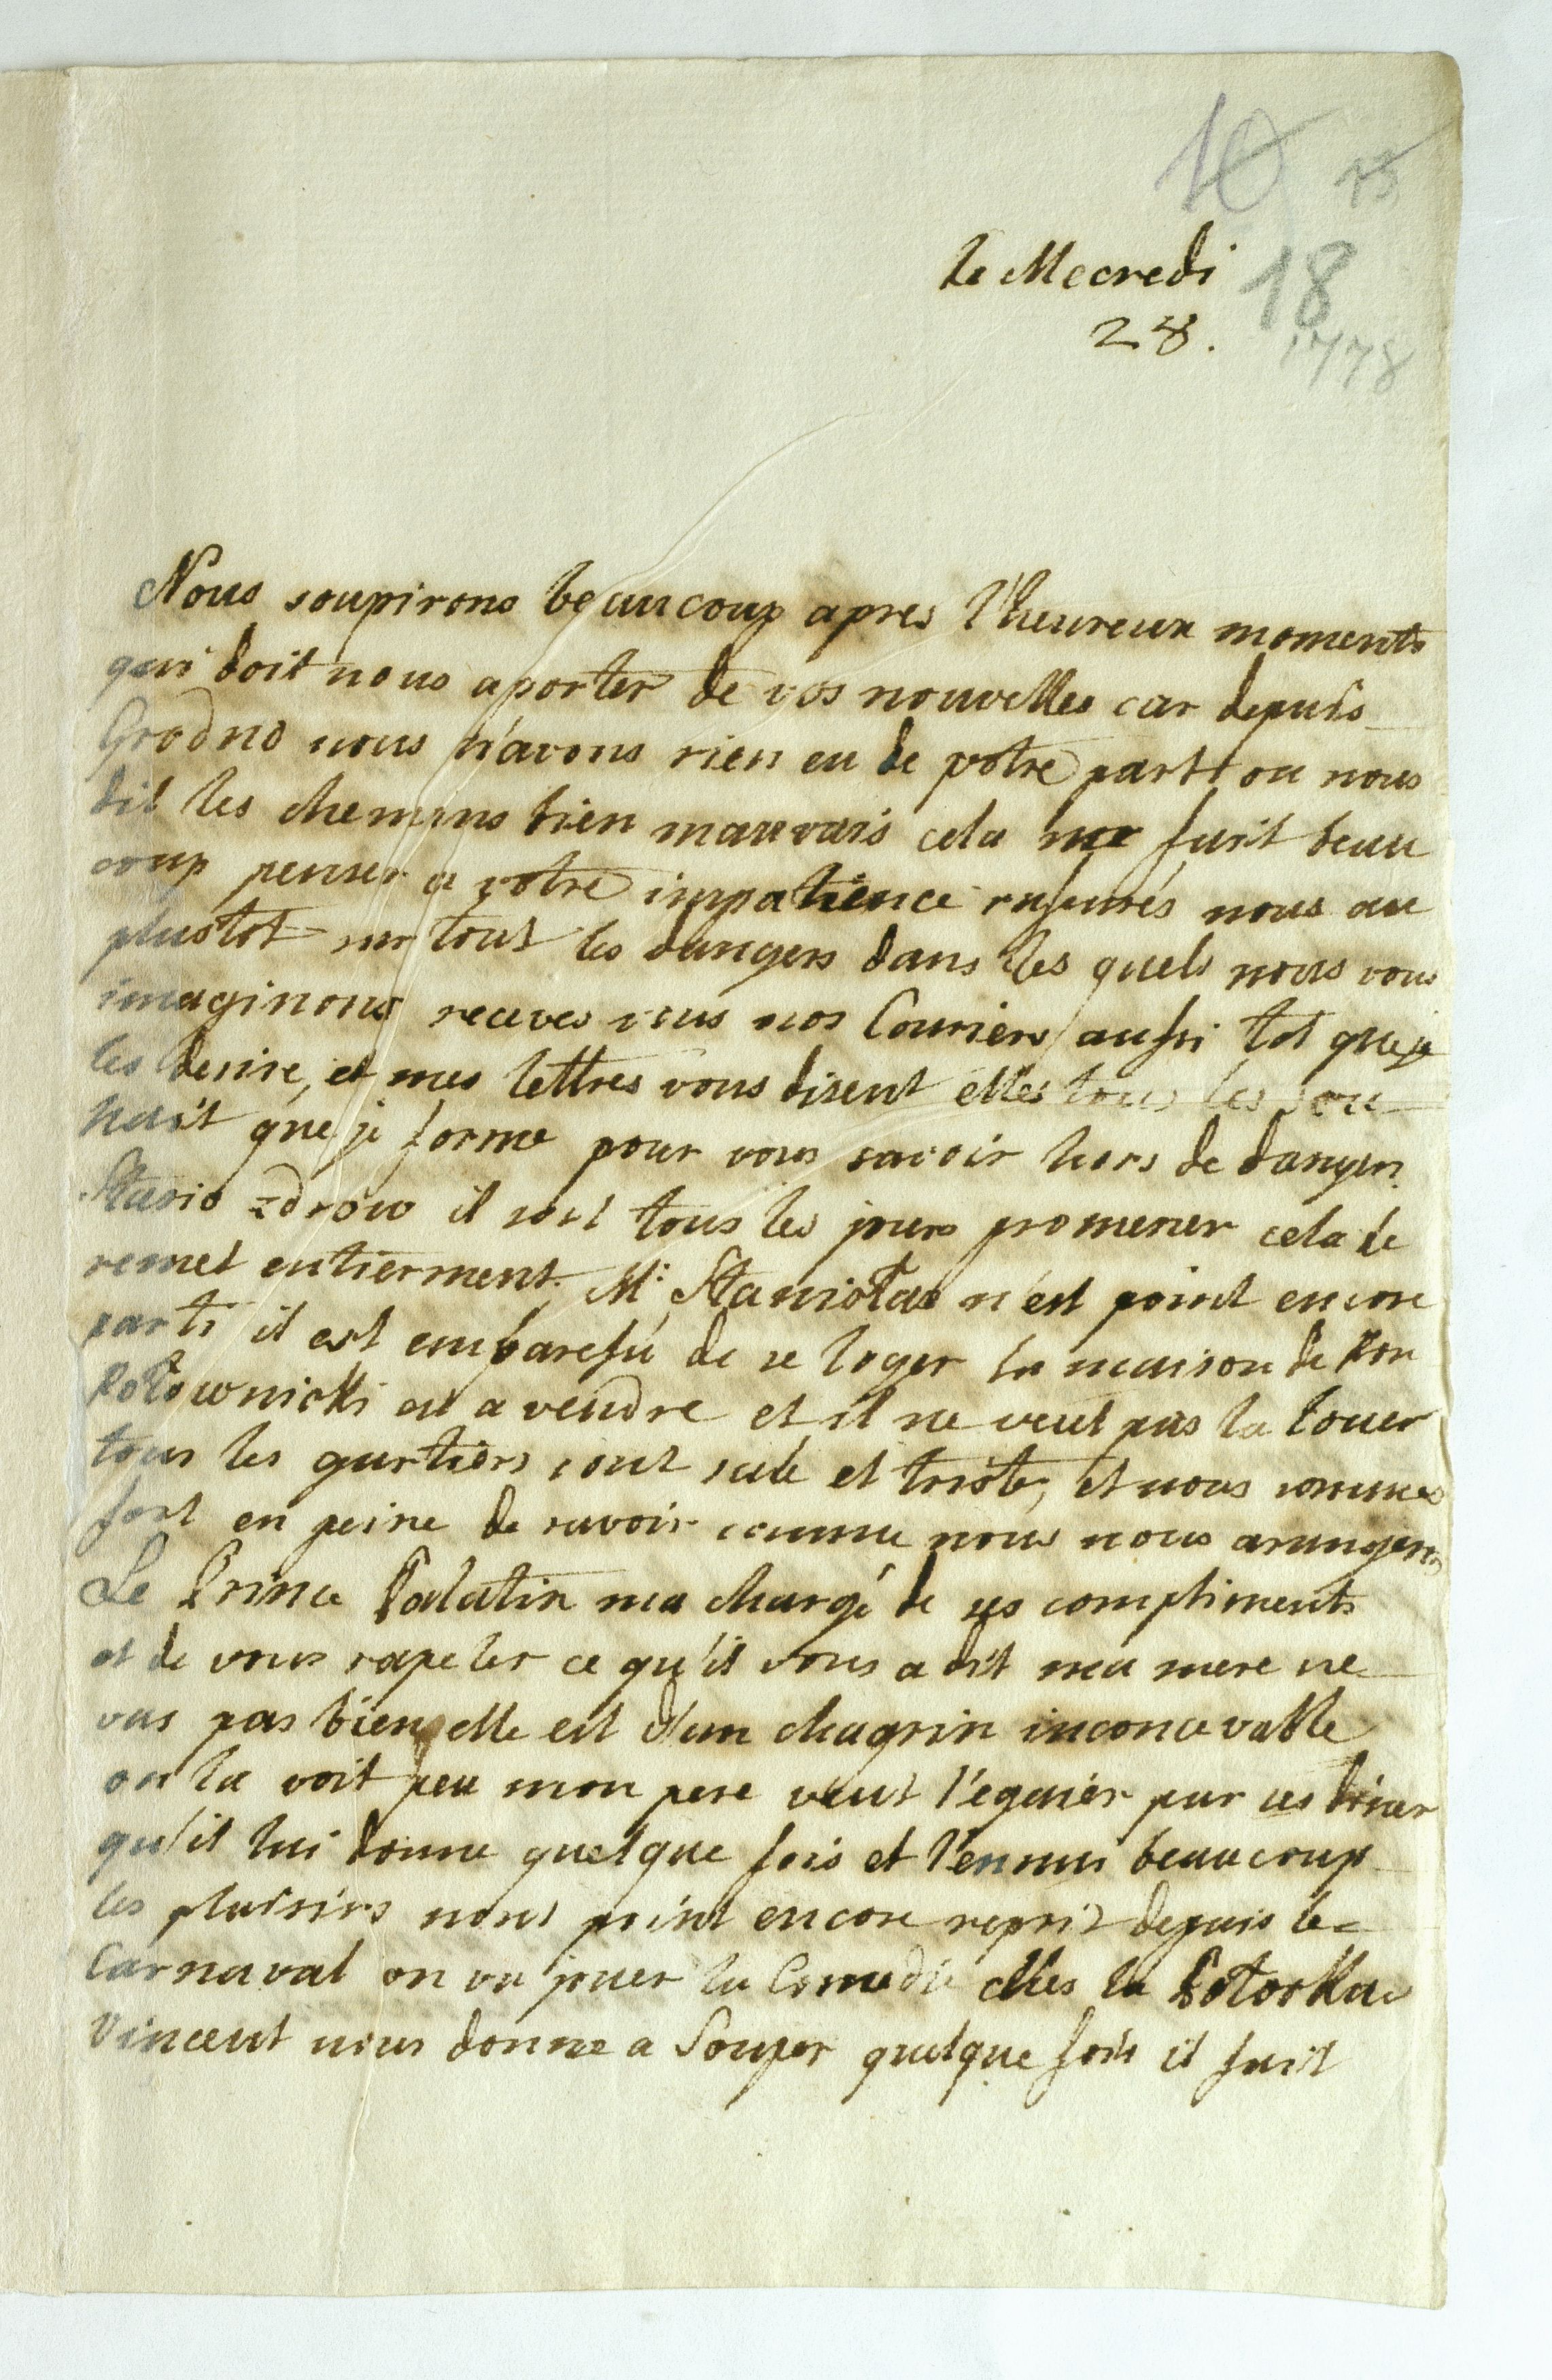 10 15
le Mecredi 18
28. 1778
Nous soupirons beaucoup apres l'heureux moments
qui doit nous aporter de vos nouvelles car depuis
Grodno nous n'avons rien eu de votre part on nous
dit les chemins bien mauvais cela me fait beau
coup penser a votre impatience rasurés nous au
plustot sur tout les dangers dans les quels nous vous
imaginons receves vous nos Couriers aussi tot que je
les desire, et mes lettres vous disent elles tous les sou
hait que je forme pour vous savoir hors de danger.
Stasio zdrow il sort tous les jours promener cela le
remet entierment. Mr: Stanislas n'est point encore
parti il est embarassé de se loger la maison de Pon
Rotownicki est a vendre et il ne veut pas la louer
tous les qartiers sont sale et triste, et nous sommes
fort en peine de savoir comme nous nous arangerons
Le Prince Palatin ma chargé de ses compliments
et de vous rapeler ce qu'il vous a dit ma mere ne
vas pas bien elle est d'un chagrin inconcevable
on la voit peu mon pere veut l'egaier par ces diner
qu'il lui donne quelque fois et l'ennui beaucoup
les plaisirs nont point encore repris depuis le
Carnaval on va jouer la Comedie ches la Potocka
Vincent nous donne a Souper quelque fois il fait